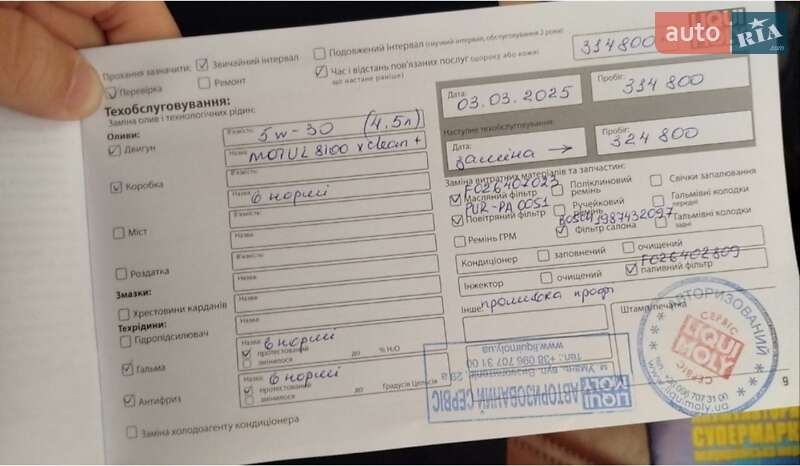 auto RIA .com
LIQUI MOLY
Прохання зазначити: Звичайний інтервал
Подовжений інтервал (гнучкий інтервал, обслуговування 2 роки)
314800
Перевірка
Ремонт
Час і відстань пов'язаних послуг (щороку або кожні
що настане раніше)
Техобслуговування:
Заміна олив і технологічних рідин:
Оливи:
Двигун
В'язкість: 5w-30 (4.5л)
Назва: MOTUL 8100 x clean +
Коробка
В'язкість:
Назва: в нормі
Міст
В'язкість:
Назва:
Роздатка
В'язкість:
Назва:
Змазки:
Хрестовини карданів
Назва:
Техрідини:
Гідропідсилювач
Назва:
Гальма
Назва: в нормі
протестований до % H₂O
змінилося
Антифриз
Назва: в нормі
протестований до Градусів Цельсія
змінилося
Заміна холодоагенту кондиціонера
Дата: 03.03.2025
Пробіг: 314 800
Наступне техобслуговування:
Дата: заміна →
Пробіг: 324 800
Заміна витратних матеріалів та запчастин:
F026407023
Масляний фільтр
Поліклиновий ремінь
Свічки запалювання
PUR-PA0051
Повітряний фільтр
Ручейковий ремінь
Гальмівні колодки передні
1987432097
Ремінь ГРМ
Фільтр салона
Гальмівні колодки задні
Кондиціонер заповнений очищений
F026402809
Інжектор очищений паливний фільтр
Інше: промивка
Штамп/печатка
АВТОРИЗОВАНИЙ СЕРВІС
LIQUI MOLY
тел. +38 098 707 31 00
www.liquimoly.ua
LIQUI MOLY АВТОРИЗОВАНИЙ СЕРВІС
м. Умань, вул.
тел.: +38 098 707 31 00
www.liquimoly.ua
9
СУПЕРМАРК